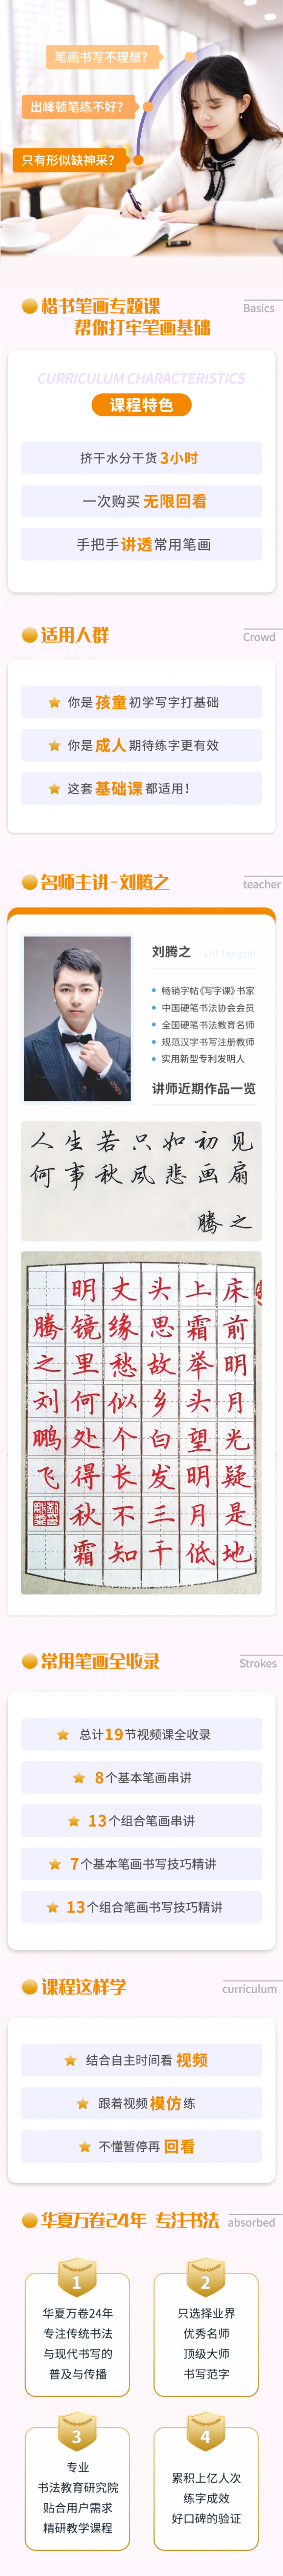 笔画书写不理想?
出峰顿笔练不好?
只有形似缺神采?
楷书笔画专题课
帮你打牢笔画基础
Basics
CURRICULUM CHARACTERISTICS
课程特色
挤干水分干货3小时
一次购买无限回看
手把手讲透常用笔画
适用人群
Crowd
你是孩童初学写字打基础
你是成人期待练字更有效
这套基础课都适用!
名师主讲-刘腾之
teacher
刘腾之 LIU Tengzhi
畅销字帖《写字课》书家
中国硬笔书法协会会员
全国硬笔书法教育名师
规范汉字书写注册教师
实用新型专利发明人
讲师近期作品一览
人生若只如初见
何事秋风悲画扇
腾之
床前明月光疑是地
上霜举头望明月低
头思故乡白发三千
丈缘愁似个长不知
明镜里何处得秋霜
腾之刘鹏飞
常用笔画全收录
Strokes
总计19节视频课全收录
8个基本笔画串讲
13个组合笔画串讲
7个基本笔画书写技巧精讲
13个组合笔画书写技巧精讲
课程这样学
curriculum
结合自主时间看视频
跟着视频模仿练
不懂暂停再回看
华夏万卷24年 专注书法
absorbed
1
华夏万卷24年
专注传统书法
与现代书写的
普及与传播
2
只选择业界
优秀名师
顶级大师
书写范字
3
专业
书法教育研究院
贴合用户需求
精研教学课程
4
累积上亿人次
练字成效
好口碑的验证